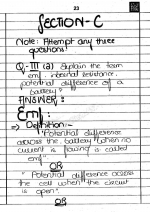 23
SECTION-C
Note: Attempt any three
questions.
Q-III (a) Explain the term
emf, internal resistance,
potential difference of a
battery.
ANSWER:
Emf:
⇒ Definition:-
"Potential difference
across the battery when no
current is flowing is called
emf"
OR
"Potential difference across
the cell when the circuit
is open".
OR